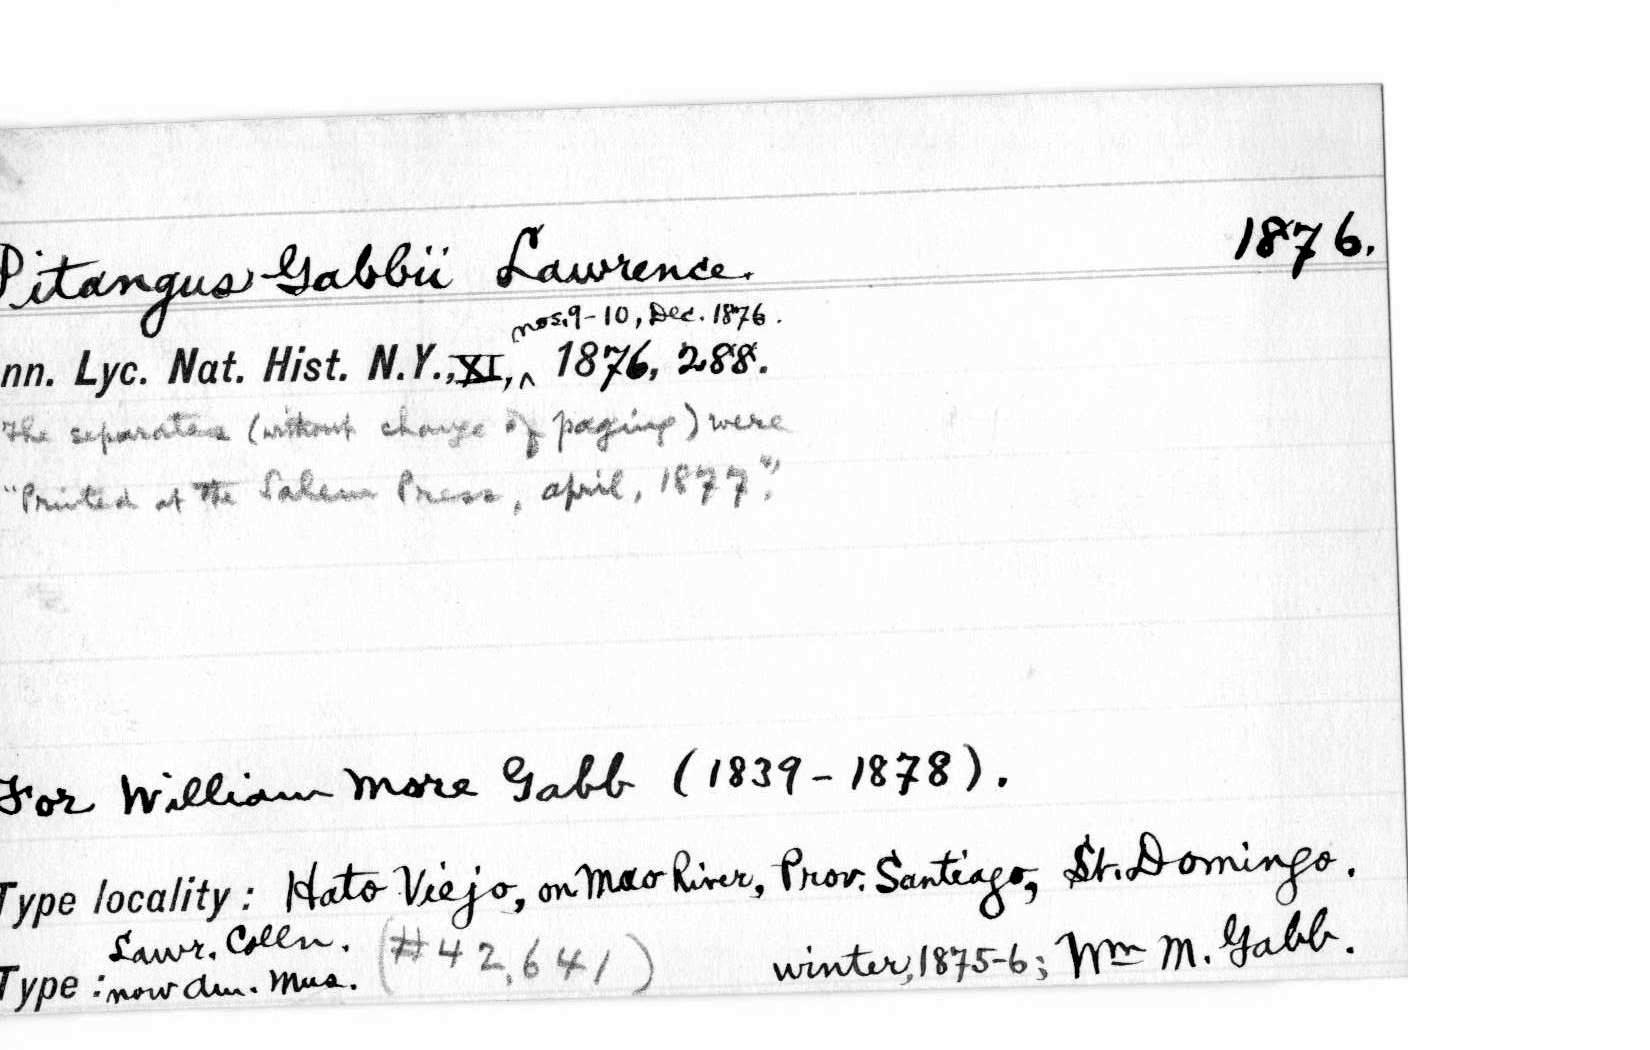 Pitangus Gabbii Lawrence. 1876.
nos. 9-10, Dec. 1876.
nn. Lyc. Nat. Hist. N.Y., XI, ^ 1876, 288.
The separates (without change of paging) were
"Printed at the Salem Press, April, 1877".
For William More Gabb (1839-1878).
Type locality: Hato Viejo, on Mao River, Prov. Santiago, St. Domingo.
Lawr. Colln. (#42,641) winter, 1875-6; Wm M. Gabb.
Type: now Am. Mus.